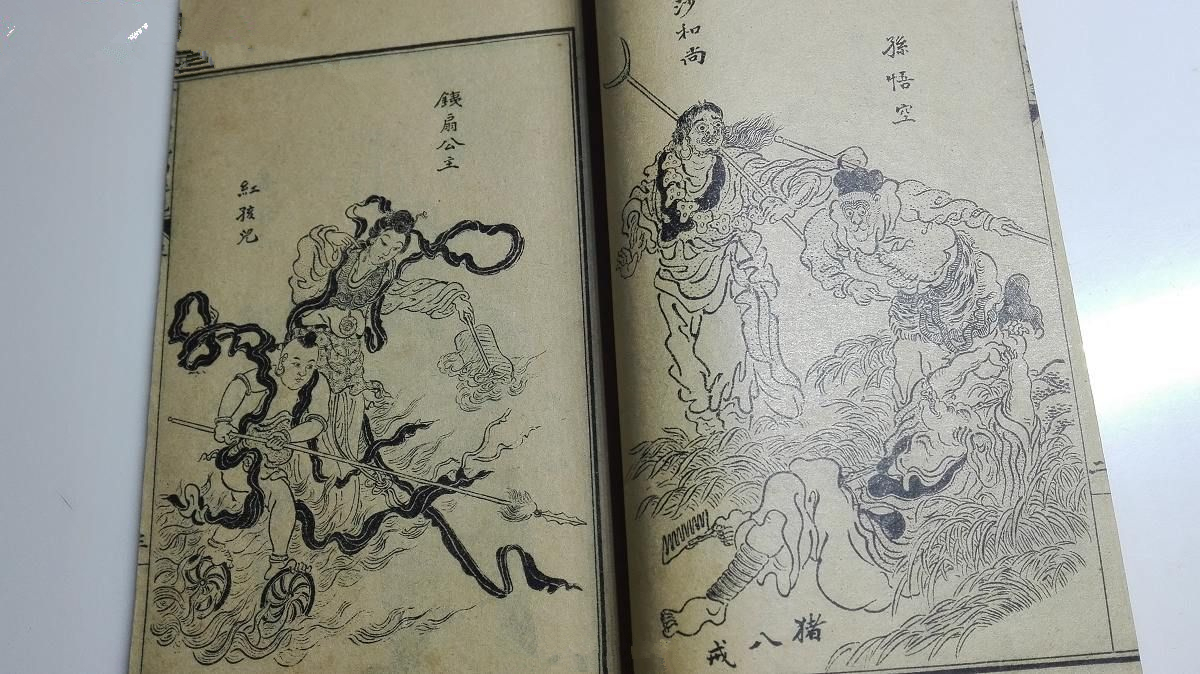 孫悟空
沙和尚
猪八戒
銕扇公主
紅孩兒